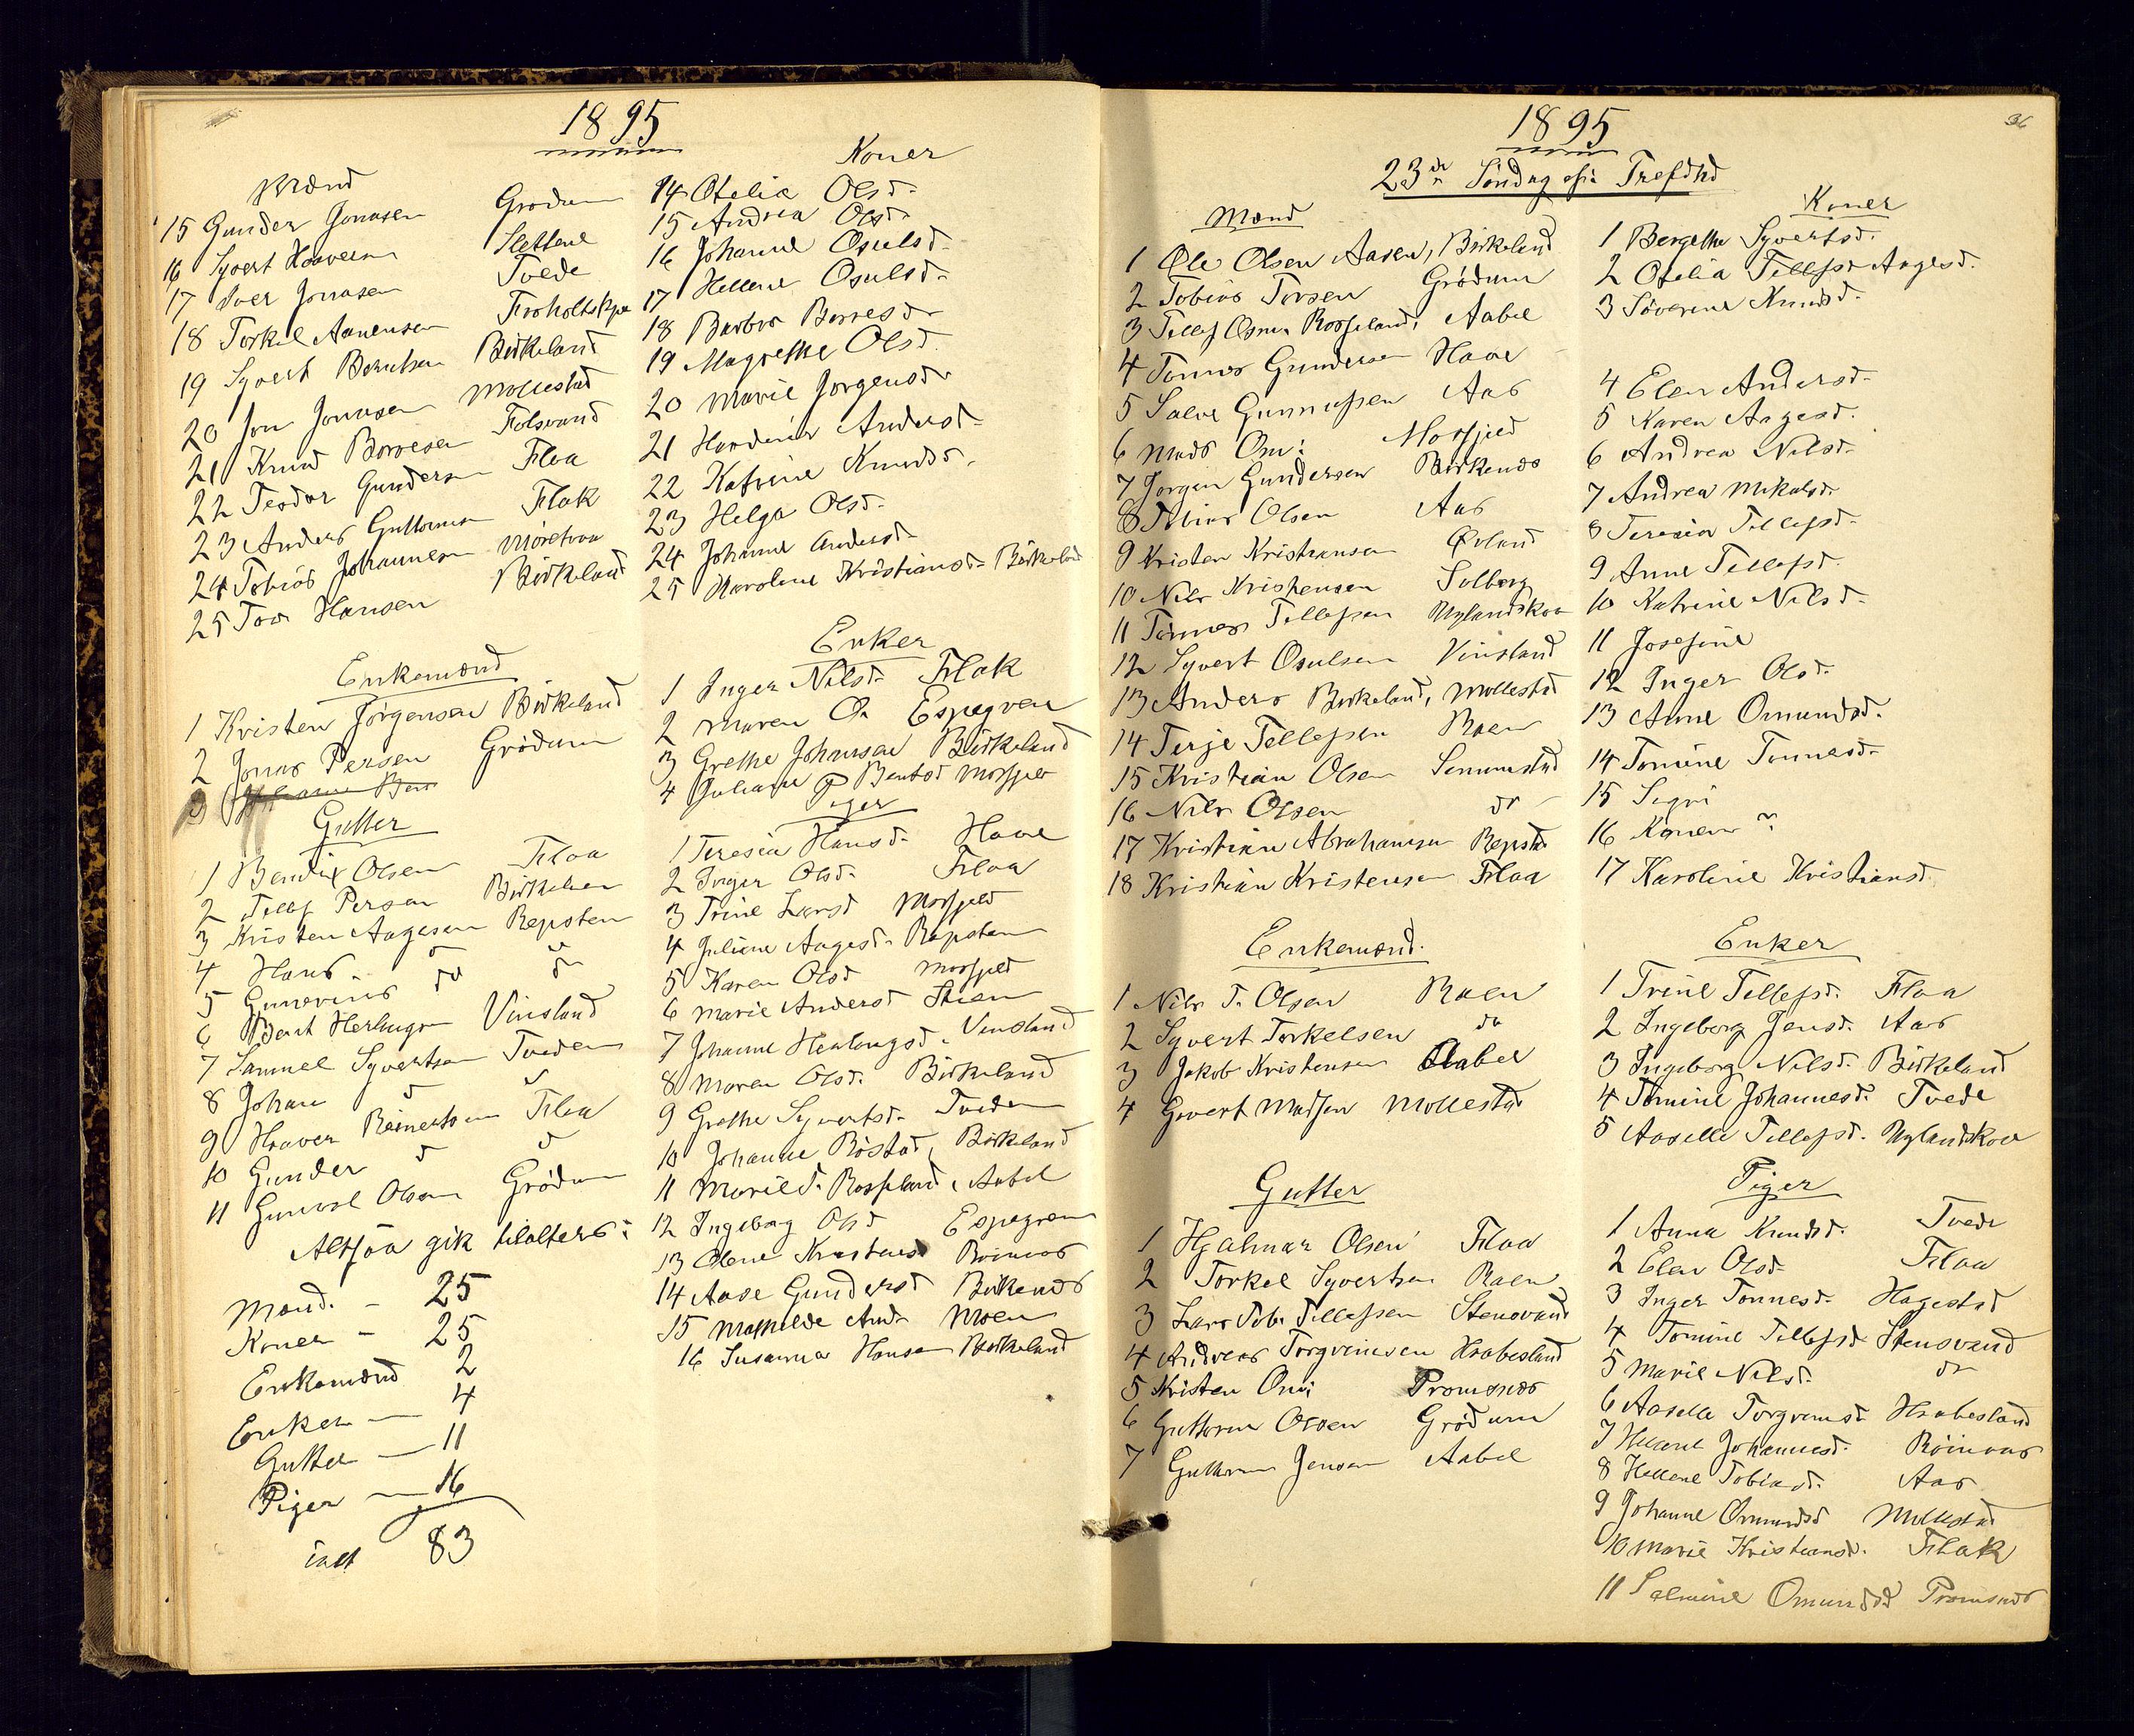 1895
Mænd
15 Gunder Jonasen Grødum
16 Syvert Haaversen Slettene
17 Iver Jonasen Tvede
18 Torkel Aanensen
19 Syvert Berntsen Birkeland
20 Jon Jonasen Mollestad
21 Knud Børresen Folsvand
22 Teodor Gundersen Floa
23 Anders Guttormsen Flak
24 Tobias Johannesen
25 Tor Hansen Birkeland
Enkemænd
1 Kristen Jørgensen Birkeland
2 Jonas Persen Grødum
3
Gutter
1 Bendix Olsen Floa
2 Tellef Persen
3 Kristen Aagesen Repsten
4 Hans do do
5 Gunerius do do
6 Bent Herlugsen Vinsland
7 Samuel Syvertsen Tveden
8 Johan do do
9 Haaver Reinertsen Floa
10 Gunder do do
11 Gunvol Olsen Grødum
Altsaa gik tilalters:
Mænd. - 25
Koner - 25
Enkemænd 2
Enker — 4
Gutter — 11
Piger — 16
ialt 83
Koner
14 Otelia Olsd.
15 Andrea Olsd.
16 Johanne Osulsd.
17 Hellene Osulsd.
18 Barbro Børresd.
19 Magrethe Olsd.
20 Marie Jørgensd.
21 Andersd.
22 Katrine Knudsd.
23 Helga Olsd.
24 Johanne Andersd.
25 Karoline Kristiansd. Birkeland
Enker
1 Inger Nilsd. Flak
2 Maren O. Espegren
3 Grethe Johansen Birkeland
4 Juliane Bentsd Mosfjeld
Piger
1 Teresia Hansd. Haae
2 Inger Olsd. Floa
3 Trine Larsd Mosfjeld
4 Juliane Aagesd. Repsten
5 Karen Olsd Mosfjeld
6 Marie Andersd Stien
7 Johanne Herlougsd. Vinsland
8 Maren Olsd. Birkeland
9 Grethe Syvertsd. Tveden
10 Johanne Røstad, Birkeland
11 Marie T. Rosseland, Aabel
12 Ingeborg Olsd Espegren
13 Olene Kristensd Røinaas
14 Aase Gundersd Birkenes
15 Mathilde And. Moen
16 Susanna Hansen Birkeland
36
1895
23de Søndag efter Trefdhd
Mænd
1 Ole Olsen Aasen, Birkeland
2 Tobias Torsen Grødum
3 Tellef Osm. Rosseland, Aabel
4 Tønnes Gundersen Haae
5 Salve Gunnufsen Aas
6 Mads Om: Mosfjeld
7 Jørgen Gundersen Birkenes
8 Tobias Olsen Aas
9 Kristen Kristiansen Øvland
10 Nils Kristensen Solberg
11 Tønnes Tellefsen Uglandskaa
12 Syvert Osulsen Vinsland
13 Anders Birkeland, Mollestad
14 Terje Tellefsen Raen
15 Kristian Olsen Senumstad
16 Nils Olsen do
17 Kristian Abrahamsen Repstad
18 Kristian Kristensen Floa
Enkemænd.
1 Nils T. Olsen Raen
2 Syvert Torkelsen do
3 Jakob Kristensen Aabel
4 Govert Madsen Mollestad
Gutter
1 Hjalmar Olsen Floa
2 Torkel Syvertsen Raen
3 Lars Tob. Tellefsen Stensvand
4 Andreas Torgrimsen Hrabesland
5 Kristen Om: Promsnes
6 Guttorm Olsen Grødum
7 Guttorm Jensen Aabel
Koner
1 Bergethe Syvertsd.
2 Otelia Tellefsd. Aagesd.
3 Severine Knudsd.
4 Elen Andersd.
5 Karen Aagesd.
6 Andrea Nilsd.
7 Andrea Mikalsd.
8 Teresia Tellefsd.
9 Anne Tellefsd.
10 Katrine Nilsd.
11 Josefine
12 Inger Olsd.
13 Anne Omundsd.
14 Tomine Tønnesd.
15 Sigri
16 Konen ?
17 Karoline Kristiansd.
Enker
1 Trine Tellefsd. Floa
2 Ingeborg Jensd. Aas
3 Ingeborg Nilsd. Birkeland
4 Tomine Johannesd. Tvede
5 Aaselle Tellefsd. Uglandskaa
Piger
1 Anna Knudsd. Tvede
2 Elen Olsd. Floa
3 Inger Tønnesd. Hagestad
4 Tomine Tellefsd Stensvand
5 Marie Nilsd. do
6 Aaselle Torgrimsd. Hrabesland
7 Hellene Johannesd. Røinaas
8 Hellene Tobiasd. Aas
9 Johanne Omundsd Mollestad
10 Marie Kristiansd. Flak
11 Salmine Omundsd Promsnes